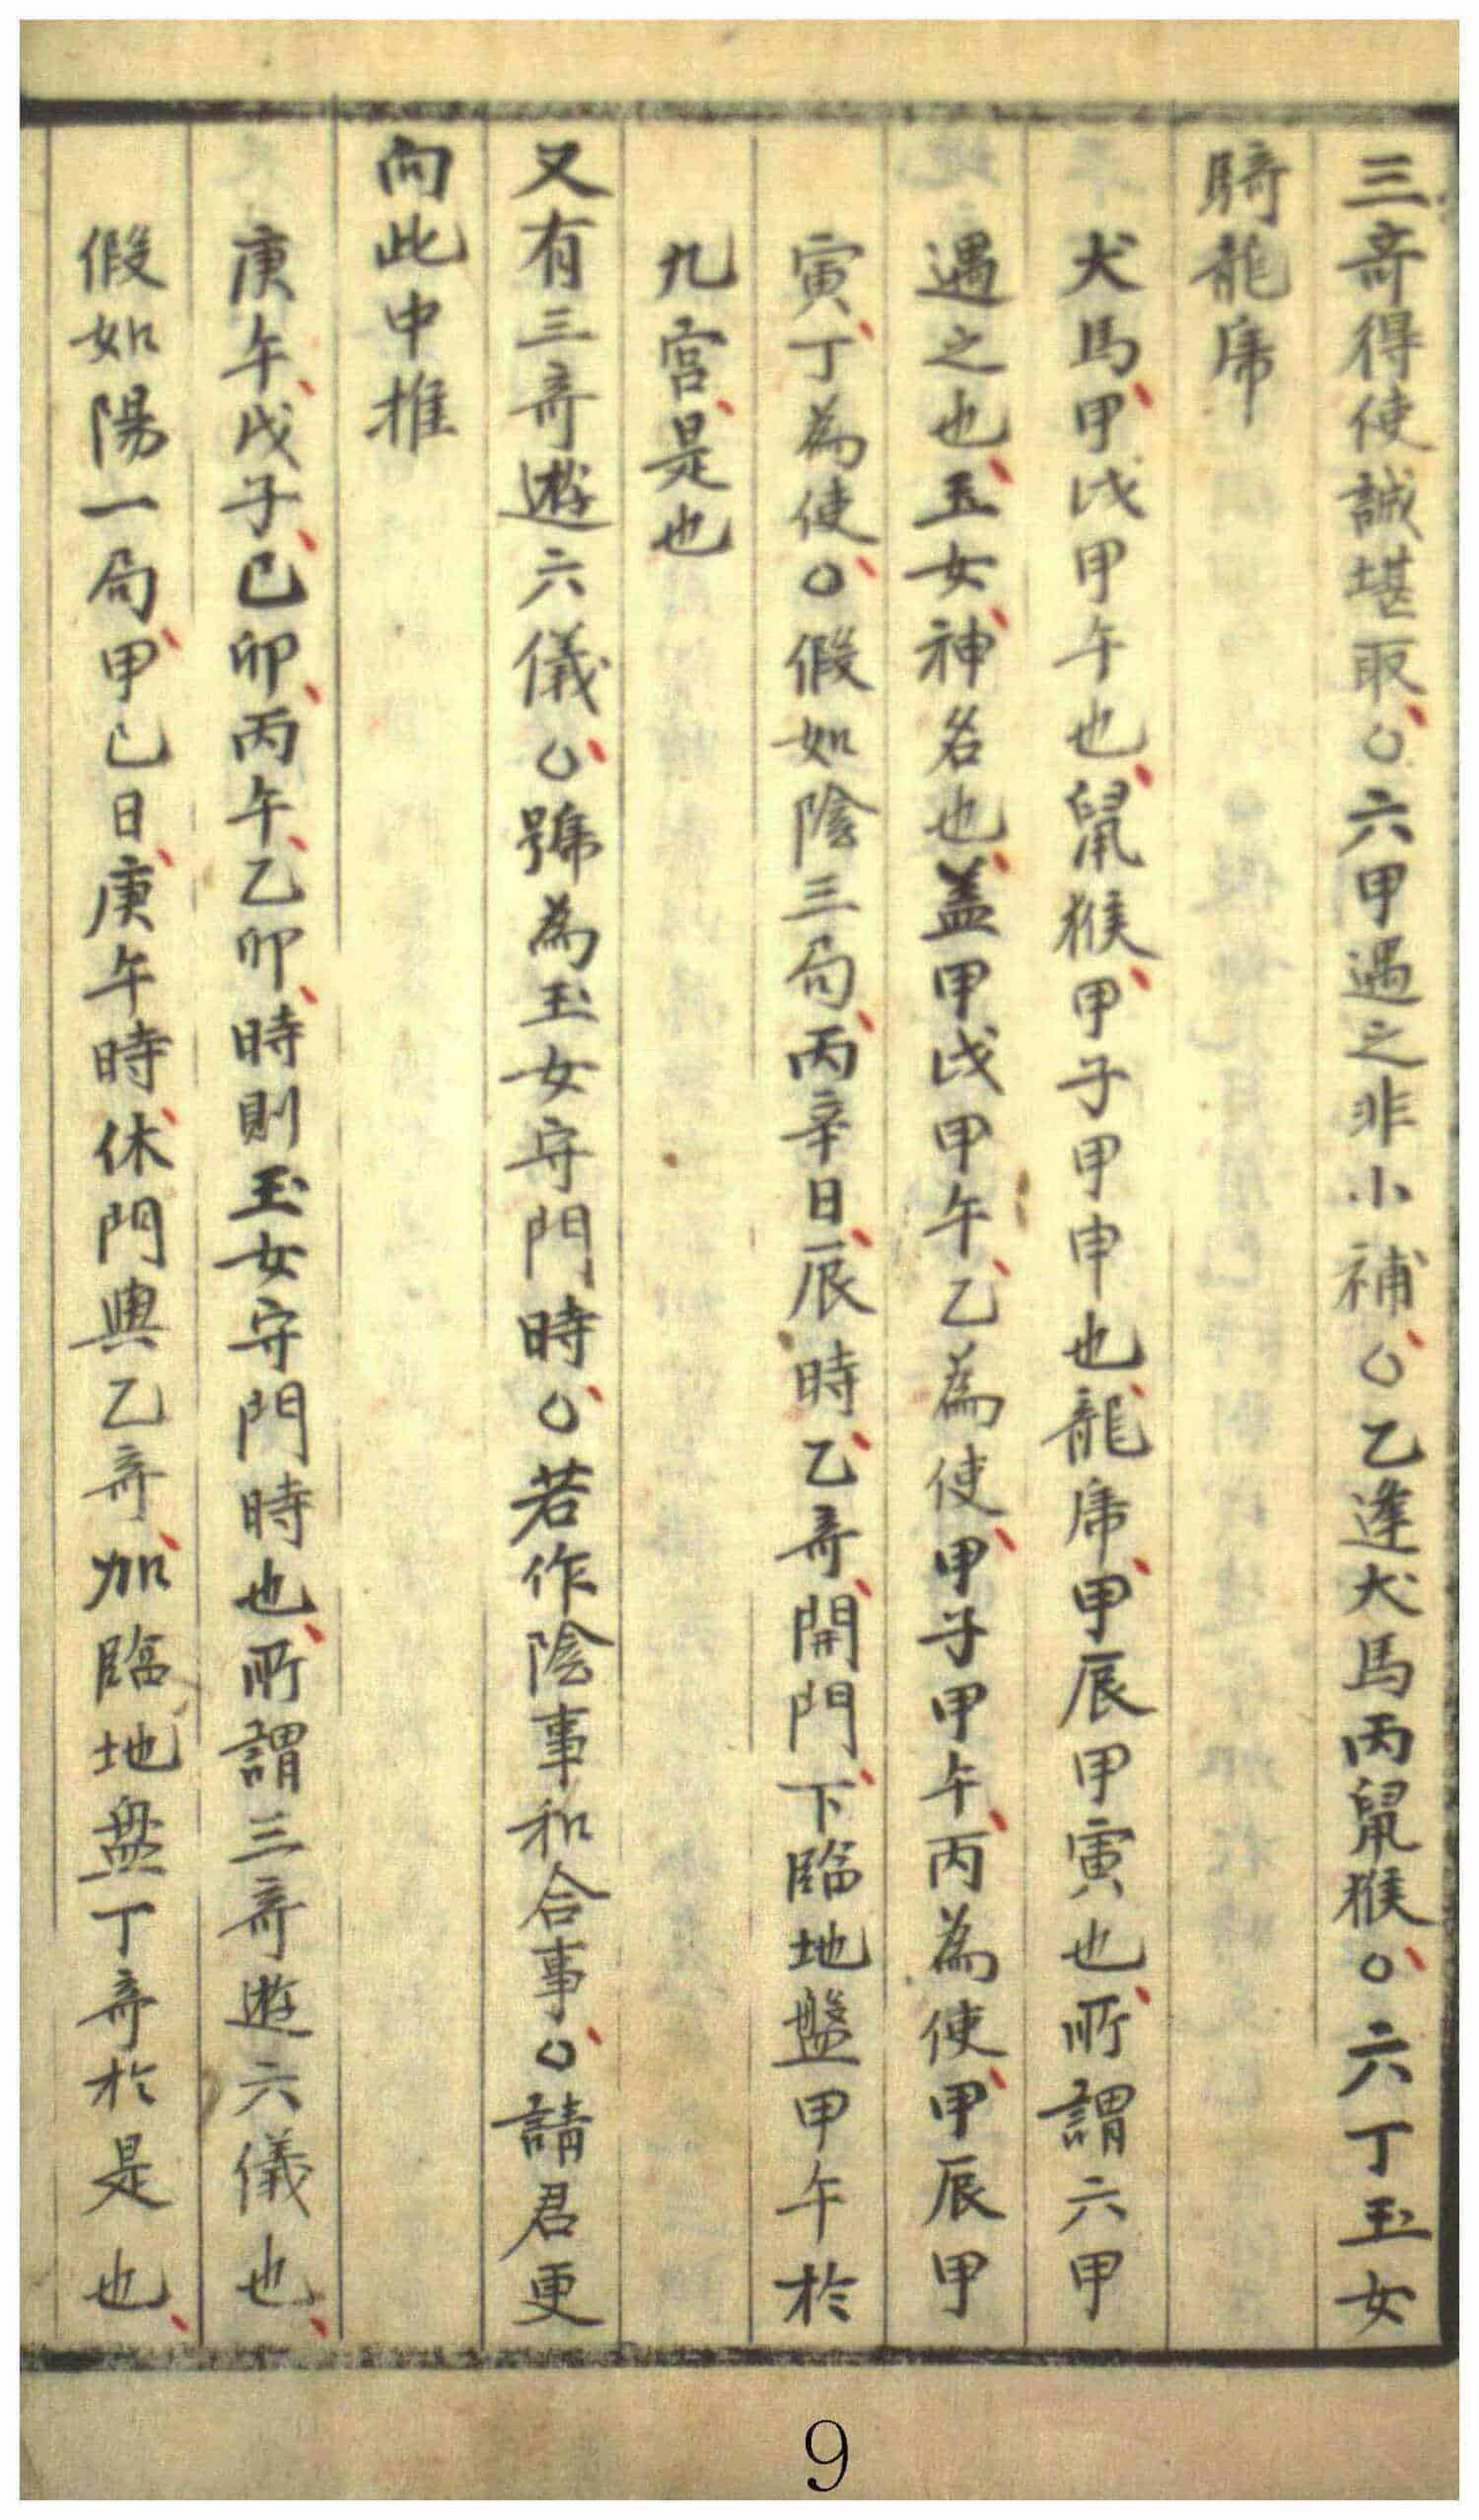 三竒得使誠堪取○六甲遇之非小補○乙逢犬馬丙䑕猴○六丁玉女
騎龍席
犬馬甲戌甲午也䑕猴甲子甲申也龍席甲辰甲寅也所謂六甲
遇之也玉女神名也盖甲戌甲午乙為使甲子甲午丙為使甲辰甲
寅丁為使○假如陰三局丙辛日辰時乙竒開門下臨地盤甲午於
九宮是也
又有三竒遊六儀○號為玉女守門時○若作陰事和合事○請君更
向此中推
庚午戊子己卯丙午乙卯時則玉女守門時也所謂三竒遊六儀也
假如陽一局甲己日庚午時休門與乙竒加臨地盘丁竒於是也
9